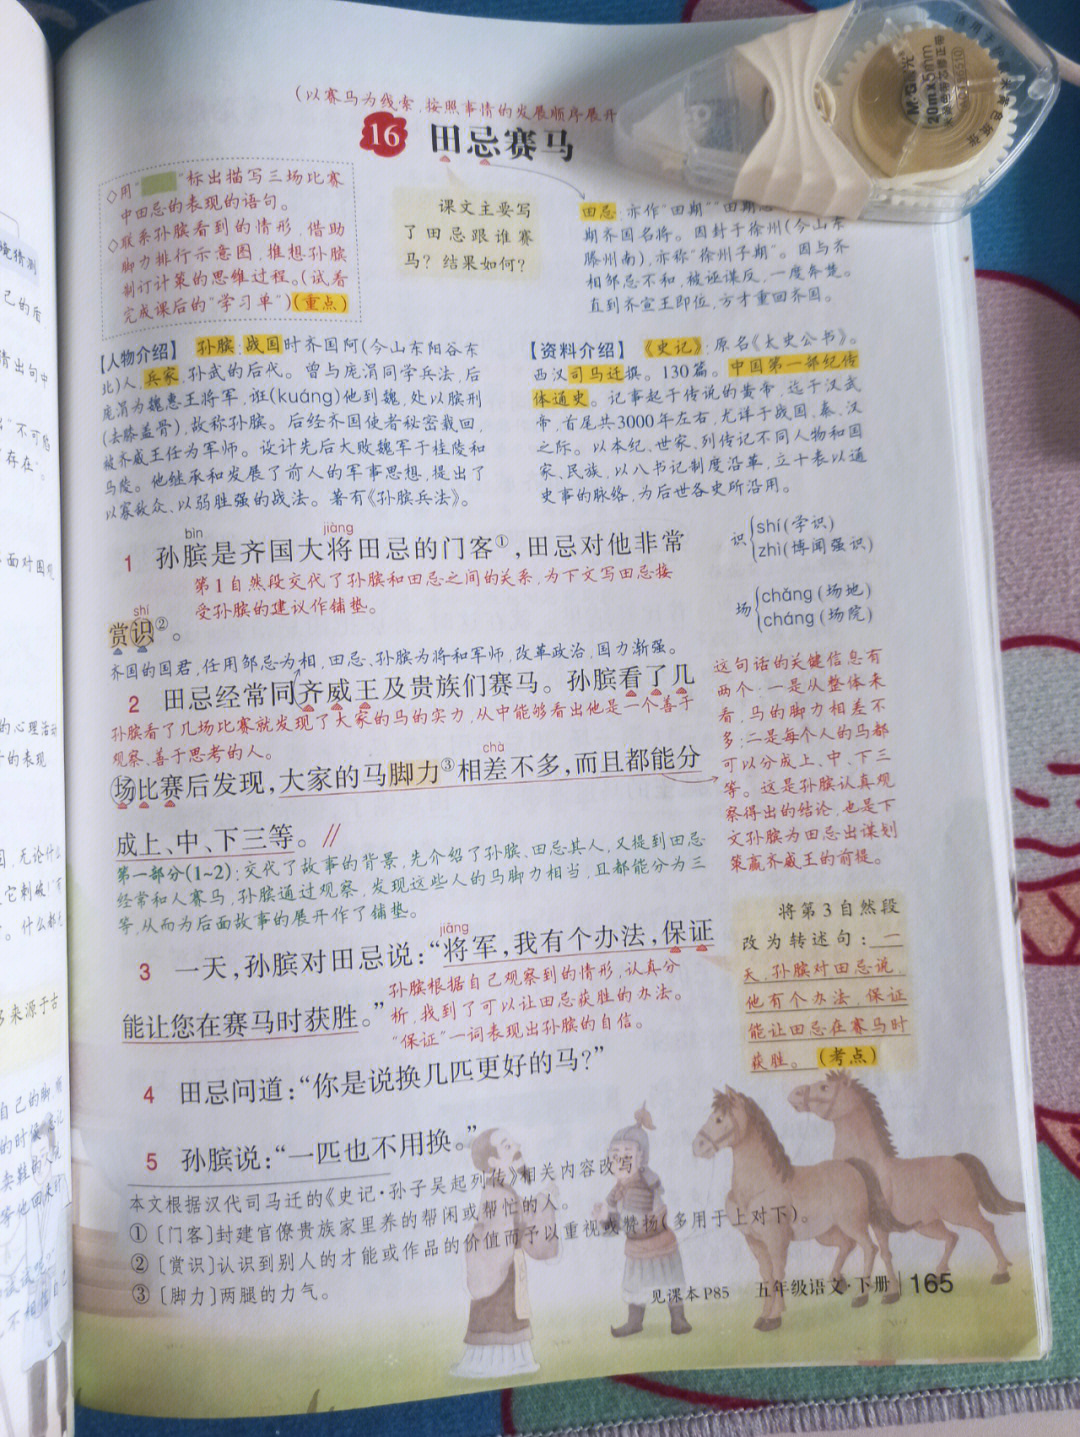 (以赛马为线索,按照事情的发展顺序展开
16 田忌赛马
◇用“ ”标出描写三场比赛
中田忌的表现的语句。
◇联系孙膑看到的情形,借助
脚力排行示意图,推想孙膑
制订计策的思维过程。(试着
完成课后的“学习单”)(重点)
课文主要写
了田忌跟谁赛
马?结果如何?
田忌:亦作“田期”“田期
期齐国名将。因封于徐州(今山东
滕州南),亦称“徐州子期”。因与齐
相邹忌不和,被诬谋反,一度奔楚。
直到齐宣王即位,方才重回齐国。
【人物介绍】 孙膑:战国时齐国阿(今山东阳谷东
北)人,兵家,孙武的后代。曾与庞涓同学兵法,后
庞涓为魏惠王将军,诳(kuáng)他到魏,处以膑刑
(去膝盖骨),故称孙膑。后经齐国使者秘密载回,
被齐威王任为军师。设计先后大败魏军于桂陵和
马陵。他继承和发展了前人的军事思想,提出了
以寡敌众、以弱胜强的战法。著有《孙膑兵法》。
【资料介绍】 《史记》:原名《太史公书》。
西汉司马迁撰。130篇。中国第一部纪传
体通史。记事起于传说的黄帝,迄于汉武
帝,首尾共3000年左右,尤详于战国、秦、汉
之际。以本纪、世家、列传记不同人物和国
家、民族,以八书记制度沿革,立十表以通
史事的脉络,为后世各史所沿用。
bìn jiàng
1 孙膑是齐国大将田忌的门客①,田忌对他非常
第1自然段交代了孙膑和田忌之间的关系,为下文写田忌接
受孙膑的建议作铺垫。
shí
赏识②。
识 shí(学识)
zhì(博闻强识)
场 chǎng(场地)
cháng(场院)
齐国的国君,任用邹忌为相,田忌、孙膑为将和军师,改革政治,国力渐强。
2 田忌经常同齐威王及贵族们赛马。孙膑看了几
孙膑看了几场比赛就发现了大家的马的实力,从中能够看出他是一个善于
观察、善于思考的人。
chà
场比赛后发现,大家的马脚力③相差不多,而且都能分
成上、中、下三等。//
这句话的关健信息有
两个:一是从整体来
看,马的脚力相差不
多;二是每个人的马都
可以分成上、中、下三
等。这是孙膑认真观
察得出的结论,也是下
文孙膑为田忌出谋划
策赢齐威王的前提。
第一部分(1~2):交代了故事的背景,先介绍了孙膑、田忌其人,又提到田忌
经常和人赛马,孙膑通过观察,发现这些人的马脚力相当,且都能分为三
等,从而为后面故事的展开作了铺垫。
jiāng
3 一天,孙膑对田忌说:“将军,我有个办法,保证
孙膑根据自己观察到的情形,认真分
析,找到了可以让田忌获胜的办法。
“保证”一词表现出孙膑的自信。
能让您在赛马时获胜。”
将第3自然段
改为转述句:一
天,孙膑对田忌说,
他有个办法,保证
能让田忌在赛马时
获胜。(考点)
4 田忌问道:“你是说换几匹更好的马?”
5 孙膑说:“一匹也不用换。”
本文根据汉代司马迁的《史记·孙子吴起列传》相关内容改写。
①〔门客〕封建官僚贵族家里养的帮闲或帮忙的人。
②〔赏识〕认识到别人的才能或作品的价值而予以重视或赞扬(多用于上对下)。
③〔脚力〕两腿的力气。
见课本P85 五年级语文·下册 165
M&G晨光
20m×5mm